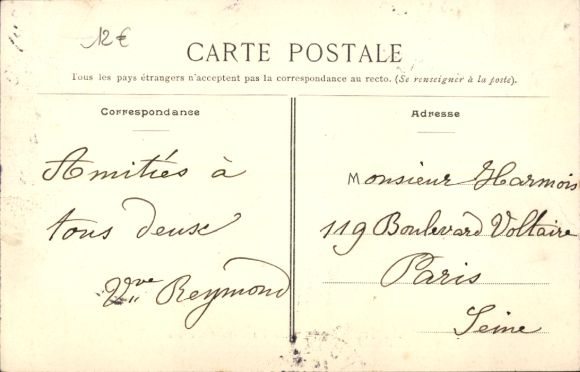 12€
CARTE POSTALE
Tous les pays étrangers n'acceptent pas la correspondance au recto. (Se renseigner à la poste).
Correspondance
Amitiés à
tous deux
Vve Reymond
Adresse
Monsieur Harmois
119 Boulevard Voltaire
Paris
Seine